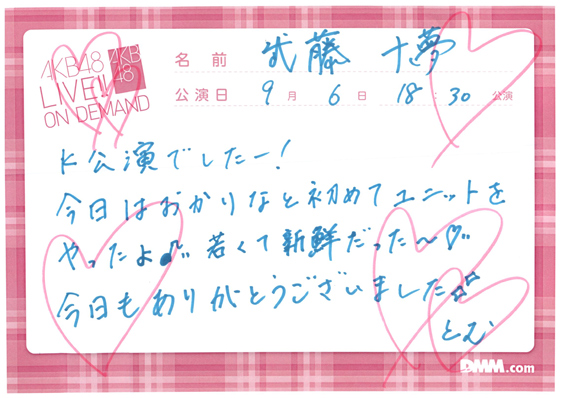 AKB48
LIVE!!
ON DEMAND
AKB
48
名前 武藤 十夢
公演日 9月 6日 18:30 公演
K公演でしたー!
今日はおかりなと初めてユニットを
やったよ♪ 若くて新鮮だった〜♡
今日もありがとうございました♪
とむ
DMM.com